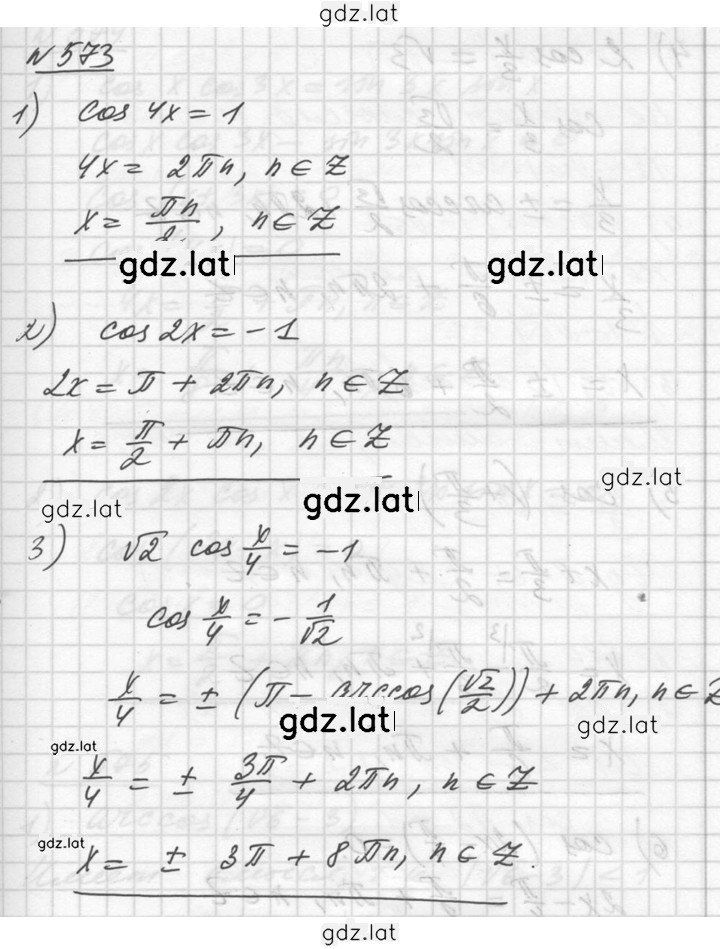 gdz.lat
N 573
1) cos 4x = 1
4x = 2πn, n ∈ Z
x = πn/2, n ∈ Z
gdz.lat gdz.lat
2) cos 2x = -1
2x = π + 2πn, n ∈ Z
x = π/2 + πn, n ∈ Z
gdz.lat gdz.lat gdz.lat
3) √2 cos x/4 = -1
cos x/4 = - 1/√2
x/4 = ± (π - arccos(√2/2)) + 2πn, n ∈ Z
gdz.lat gdz.lat
gdz.lat
x/4 = ± 3π/4 + 2πn, n ∈ Z
gdz.lat
x = ± 3π + 8πn, n ∈ Z.
gdz.lat